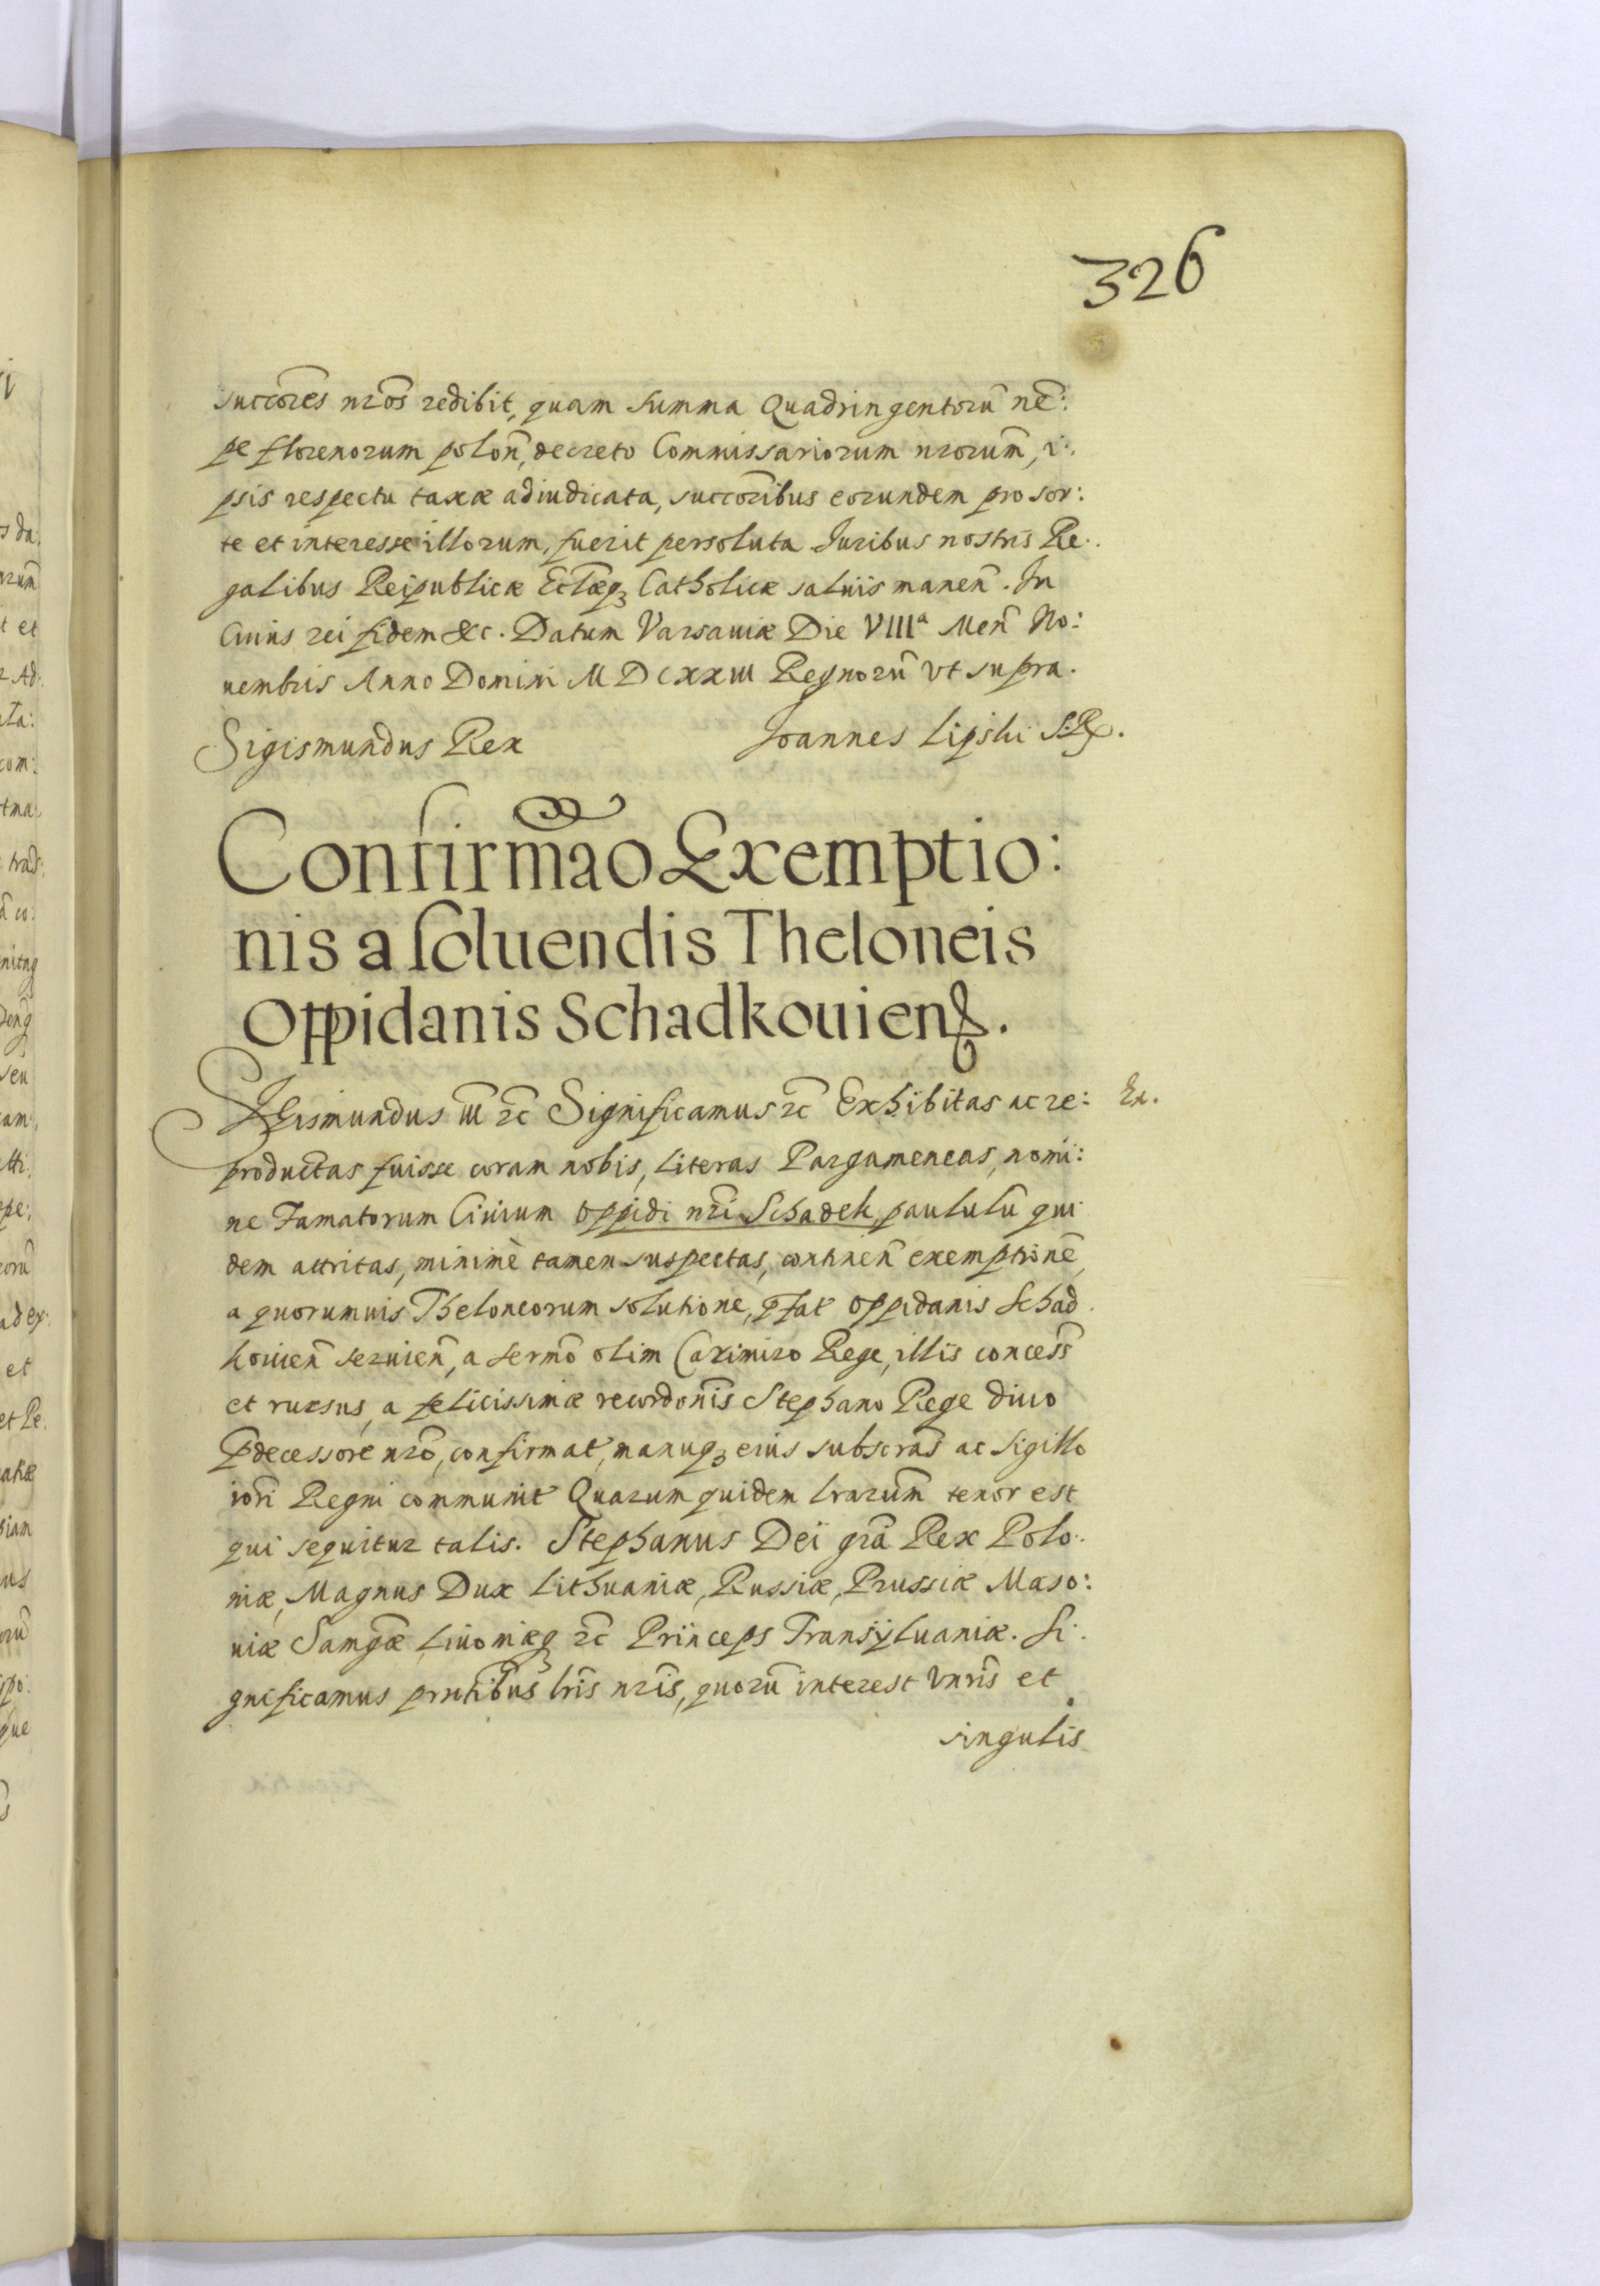 326
succores nros redibit, quam summa Quadringentorũ nē:
pe florenorum polon̄, decreto Commissariorum nrorum̄, i:
psis respectu taxæ adiudicata, succoribus eorundem pro sor:
te et interesse illorum, fuerit persoluta Juribus nostris Re:
galibus Reipublicæ Eclæq₃ Catholicæ saluis manen̄. In
Cuius rei fidem &c. Datum Varsauiæ Die VIIIª Men̄ No:
uembris Anno Domini MDCXXIII Regnorũ vt supra.
Sigismundus Rex Joannes Lipski S:R.
Confirmāo Exemptio:
nis a soluendis Theloneis
Oppidanis Schadkouien.
Sigismundus III zc̄ Significamus zc̄ Exhibitas ac re: Ex.
productas fuisse coram nobis, literas Pargameneas, nomi:
ne Famatorum Ciuium oppidi nr̄i Schadek, paululū qui
dem attritas, minimè tamen suspectas, continen̄ exemptionē,
a quorumuis Theloneorum solutione, pfat oppidanis Schad
kouien̄ seruien̄, a sermō olim Casimiro Rege, illis concess̄
et rursus, a felicissimæ recordonis Stephano Rege diuo
Pdecessore nrō, confirmat, manuq₃ eius subscras̄ ac sigillo
iori Regni communit Quarum quidem lrarum̄ tenor est
qui sequitur talis. Stephanus Dei grā Rex Polo:
niæ, Magnus Dux Lithuaniæ, Russiæ, Prussiæ Maso:
uiæ Samgæ Liuoniæq₃ zc̄ Princeps Transyluaniæ. Si:
gnificamus prntibus lris nris, quorū interest vnris et
singulis